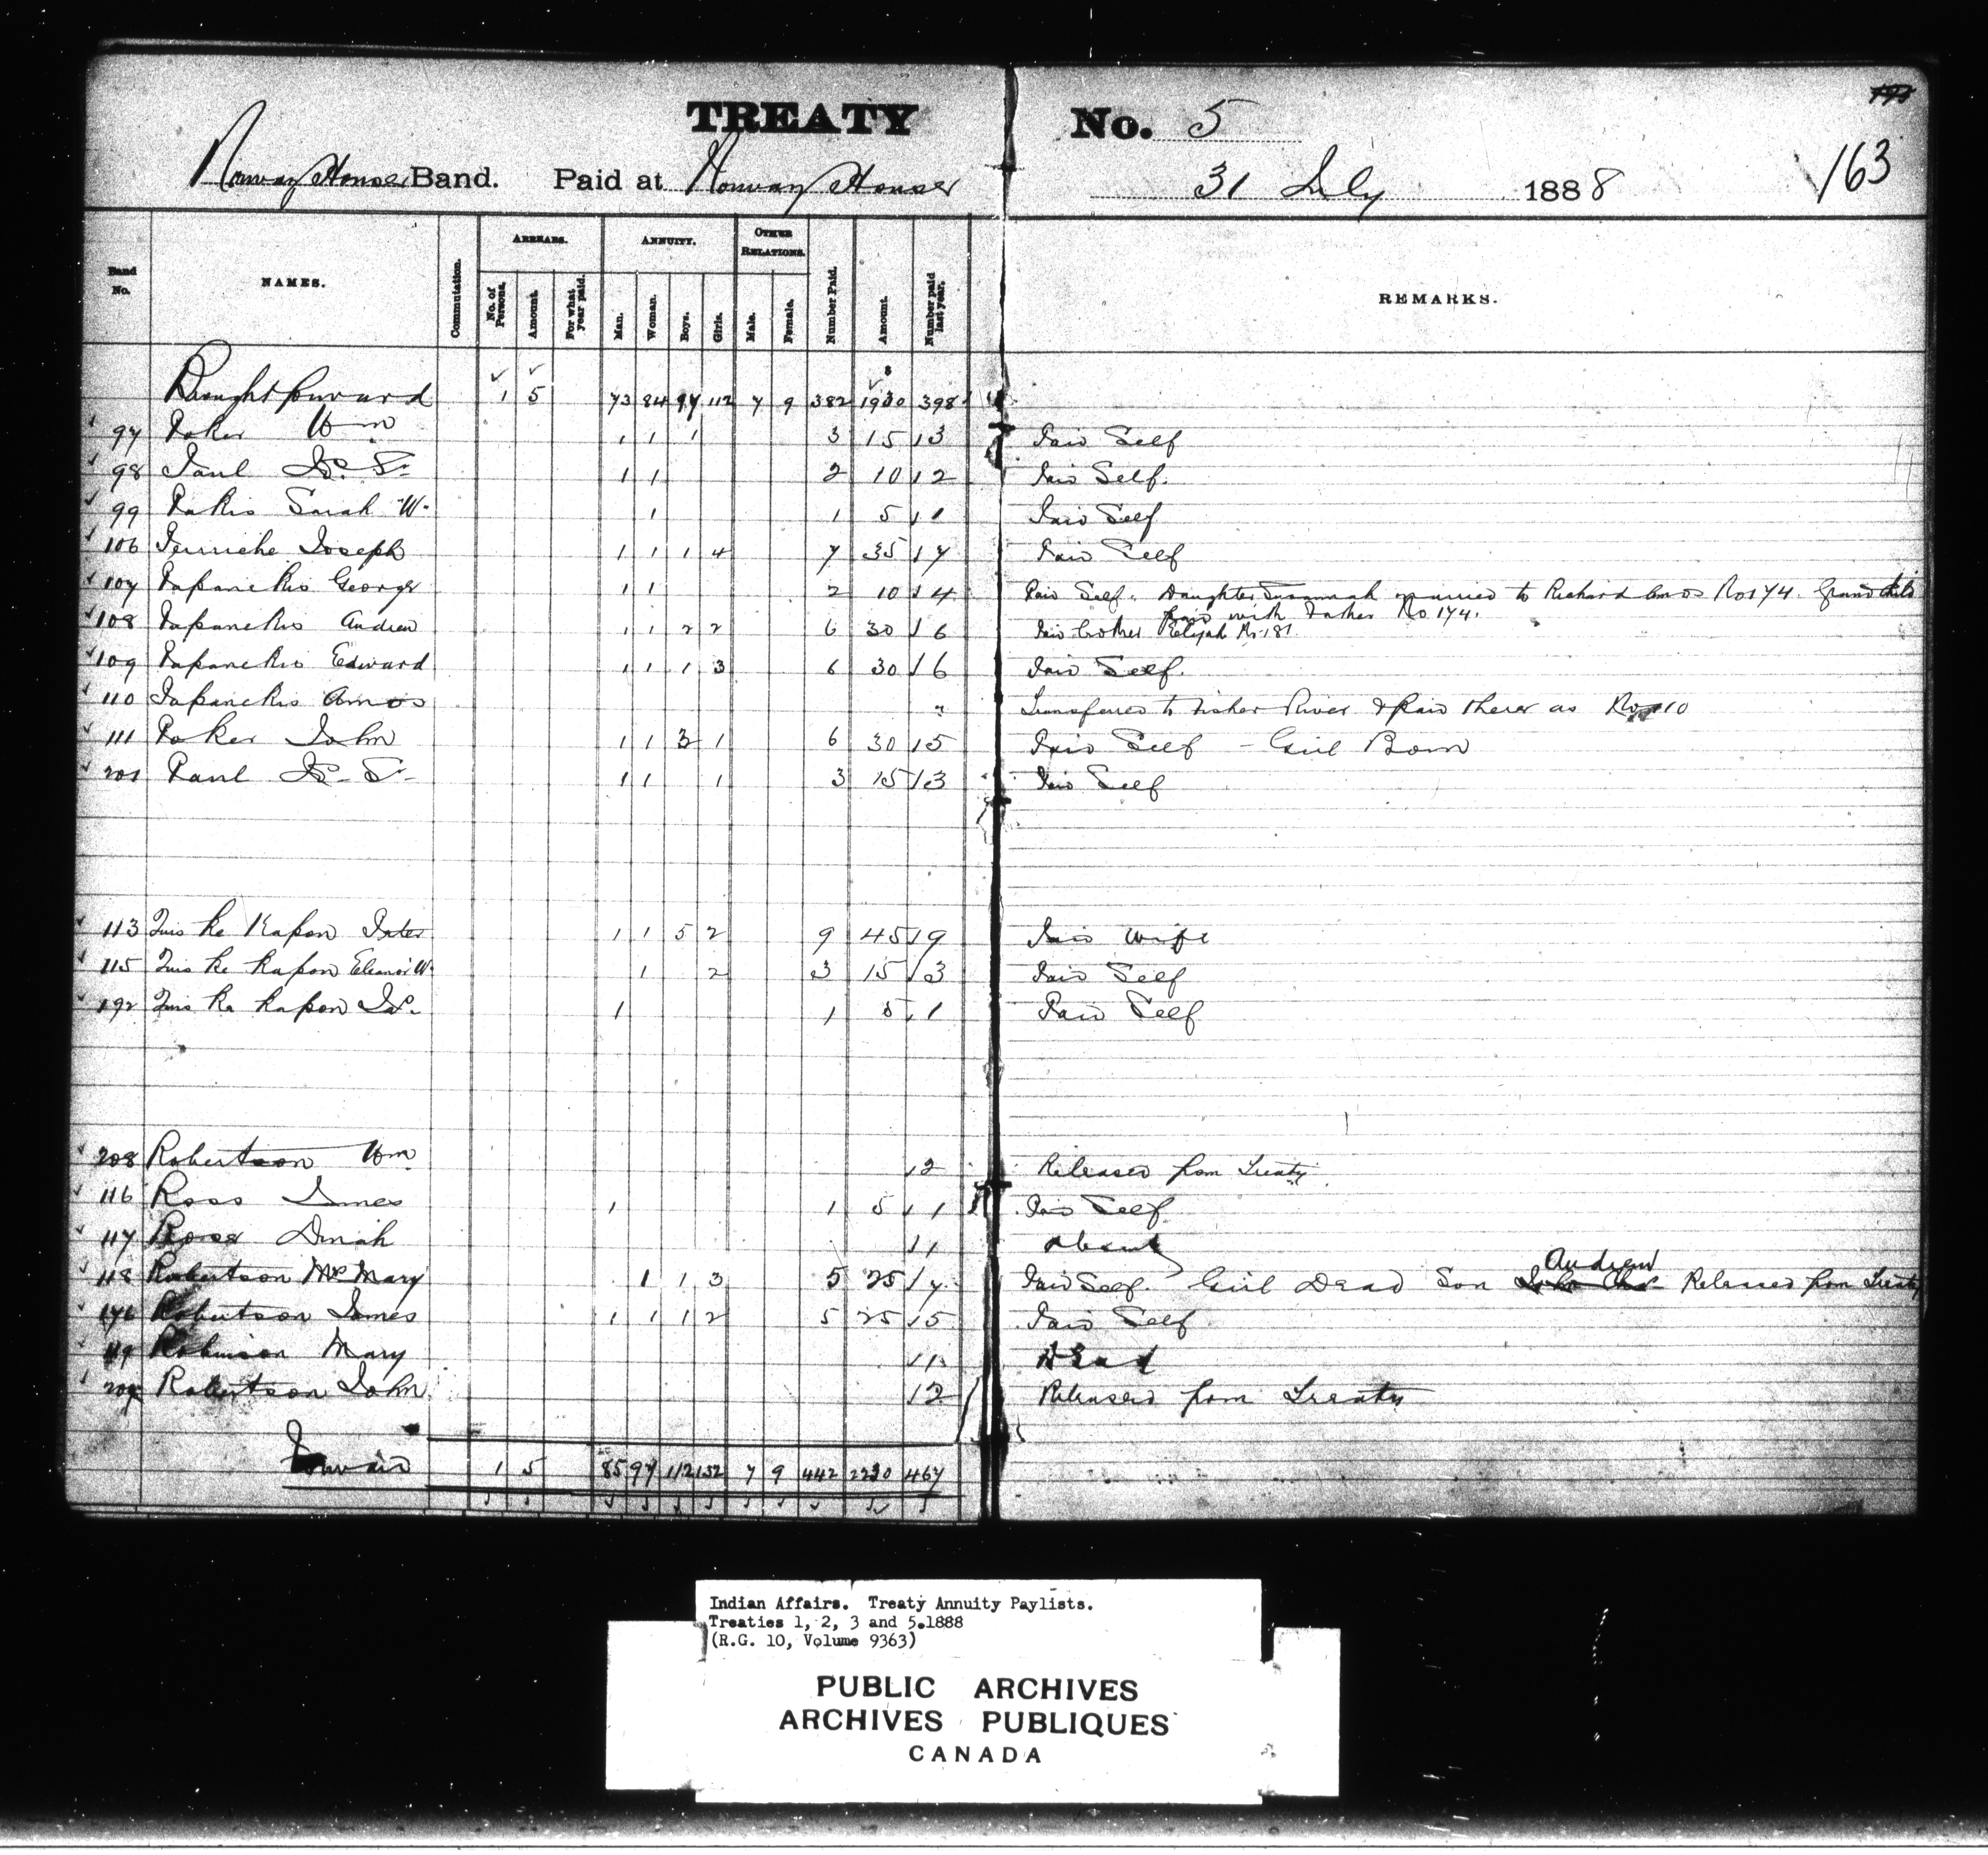 TREATY No. 5
163
Norway House Band. Paid at Norway House 31 July 1888
Band No. NAMES. Commutation. ARREARS. No. of Persons. Amount. For what year paid. ANNUITY. Man. Woman. Boys. Girls. OTHER RELATIONS. Male. Female. Number Paid. Amount. Number paid last year. REMARKS.
Brought forward 1 5 73 84 97 112 7 9 382 1930 398
97 Poker Wm 1 1 1 3 15 3 Paid Self
98 Paul 1 1 2 10 2 Paid Self.
99 Sarah W. 1 1 5 1 Paid Self
106 Joseph 1 1 1 4 7 35 7 Paid Self
107 Papanekis George 1 1 2 10 4 Paid Self. Daughter Susannah married to Richard Amos No 174. Grand child
paid with Father No 174.
108 Papanekis Andrew 1 1 2 2 6 30 6 Paid brother Elijah No 181
109 Papanekis Edward 1 1 1 3 6 30 6 Paid Self.
110 Papanekis Amos " Transferred to Fisher River & paid there as No 110
111 Poker John 1 1 3 1 6 30 5 Paid Self - Girl Born
201 Paul 1 1 1 3 15 3 Paid Self
113 Quis ke kapow Peter 1 1 5 2 9 45 9 Paid wife
115 Quis ke kapow Eleanor W. 1 2 3 15 3 Paid Self
192 Quis ke kapow 1 1 5 1 Paid Self
208 Robertson Wm 2 Released from Treaty
116 Ross James 1 1 5 1 Paid Self
117 Dinah 1 Absent
118 Robertson Mrs Mary 1 1 3 5 25 7 Paid Self. Girl Dead Son Andrew Released from Treaty
176 Robertson James 1 1 1 2 5 25 5 Paid Self
119 Robinson Mary 1 Dead
Robertson John 2 Released from Treaty
Forward 1 5 85 97 112 132 7 9 442 2230 467
Indian Affairs. Treaty Annuity Paylists.
Treaties 1, 2, 3 and 5.1888
(R.G. 10, Volume 9363)
PUBLIC ARCHIVES
ARCHIVES PUBLIQUES
CANADA